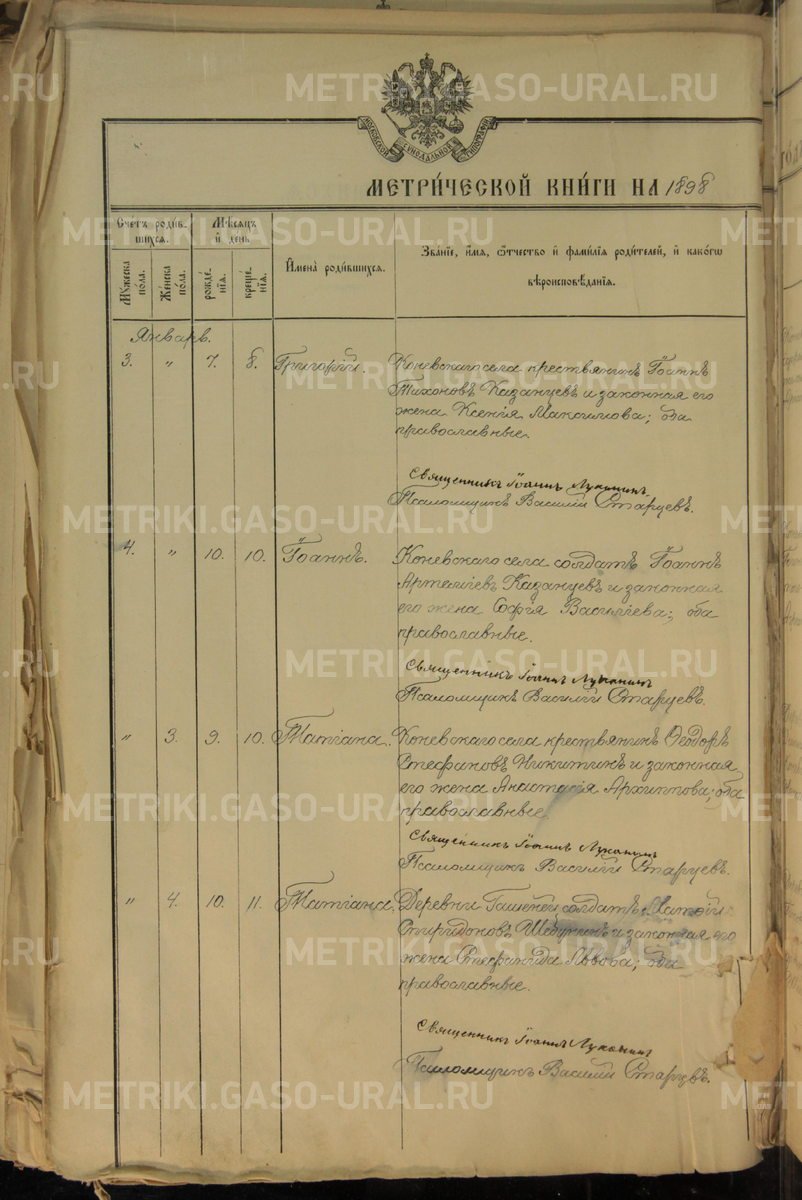 МОСКОВСКОЙ СѴНОДАЛЬНОЙ ТИПОГРАФІИ
МЕТРИ́ЧЕСКОЙ КНИ́ГИ НА 1898
Сче́тъ роди́в-
шихсѧ.
Мѣ́сѧцъ
и҆ день
И҆мена̀ роди́вшихсѧ.
Зва́нїе, и҆́мѧ, ѻ҆́тчество и҆ фами́лїѧ роди́телей, и҆ како́гѡ
вѣроисповѣ́данїѧ.
Мꙋ́жеска
по́ла.
Же́нска
по́ла.
рожде́-
нїѧ.
креще́-
нїѧ.
Январь.
3. " 7. 8. Григорій. Коневскаго села крестьянинъ Іоаннъ
Тихоновъ Казанцевъ и законная его
жена Ксенія Максимова; оба
православные.
Священникъ Іоаннъ Луканинъ
Псаломщикъ Василій Старцевъ.
4. " 10. 10. Іоаннъ. Коневскаго села солдатъ Іоаннъ
Артеміевъ Казанцевъ и законная
его жена Софія Васильева; оба
православные.
Священникъ Іоаннъ Луканинъ
Псаломщикъ Василій Старцевъ.
" 3. 9. 10. Татіана. Коневскаго села крестьянинъ Ѳеодоръ
Стефановъ Никитинъ и законная
его жена Анастасія Архиппова; оба
православные.
Священникъ Іоаннъ Луканинъ
Псаломщикъ Василій Старцевъ.
" 4. 10. 11. Татіана. Деревни солдатъ
Спиридоновъ и законная его
жена Стефанида Львова; оба
православные.
Священникъ Іоаннъ Луканинъ
Псаломщикъ Василій Старцевъ.
METRIKI.GASO-URAL.RU